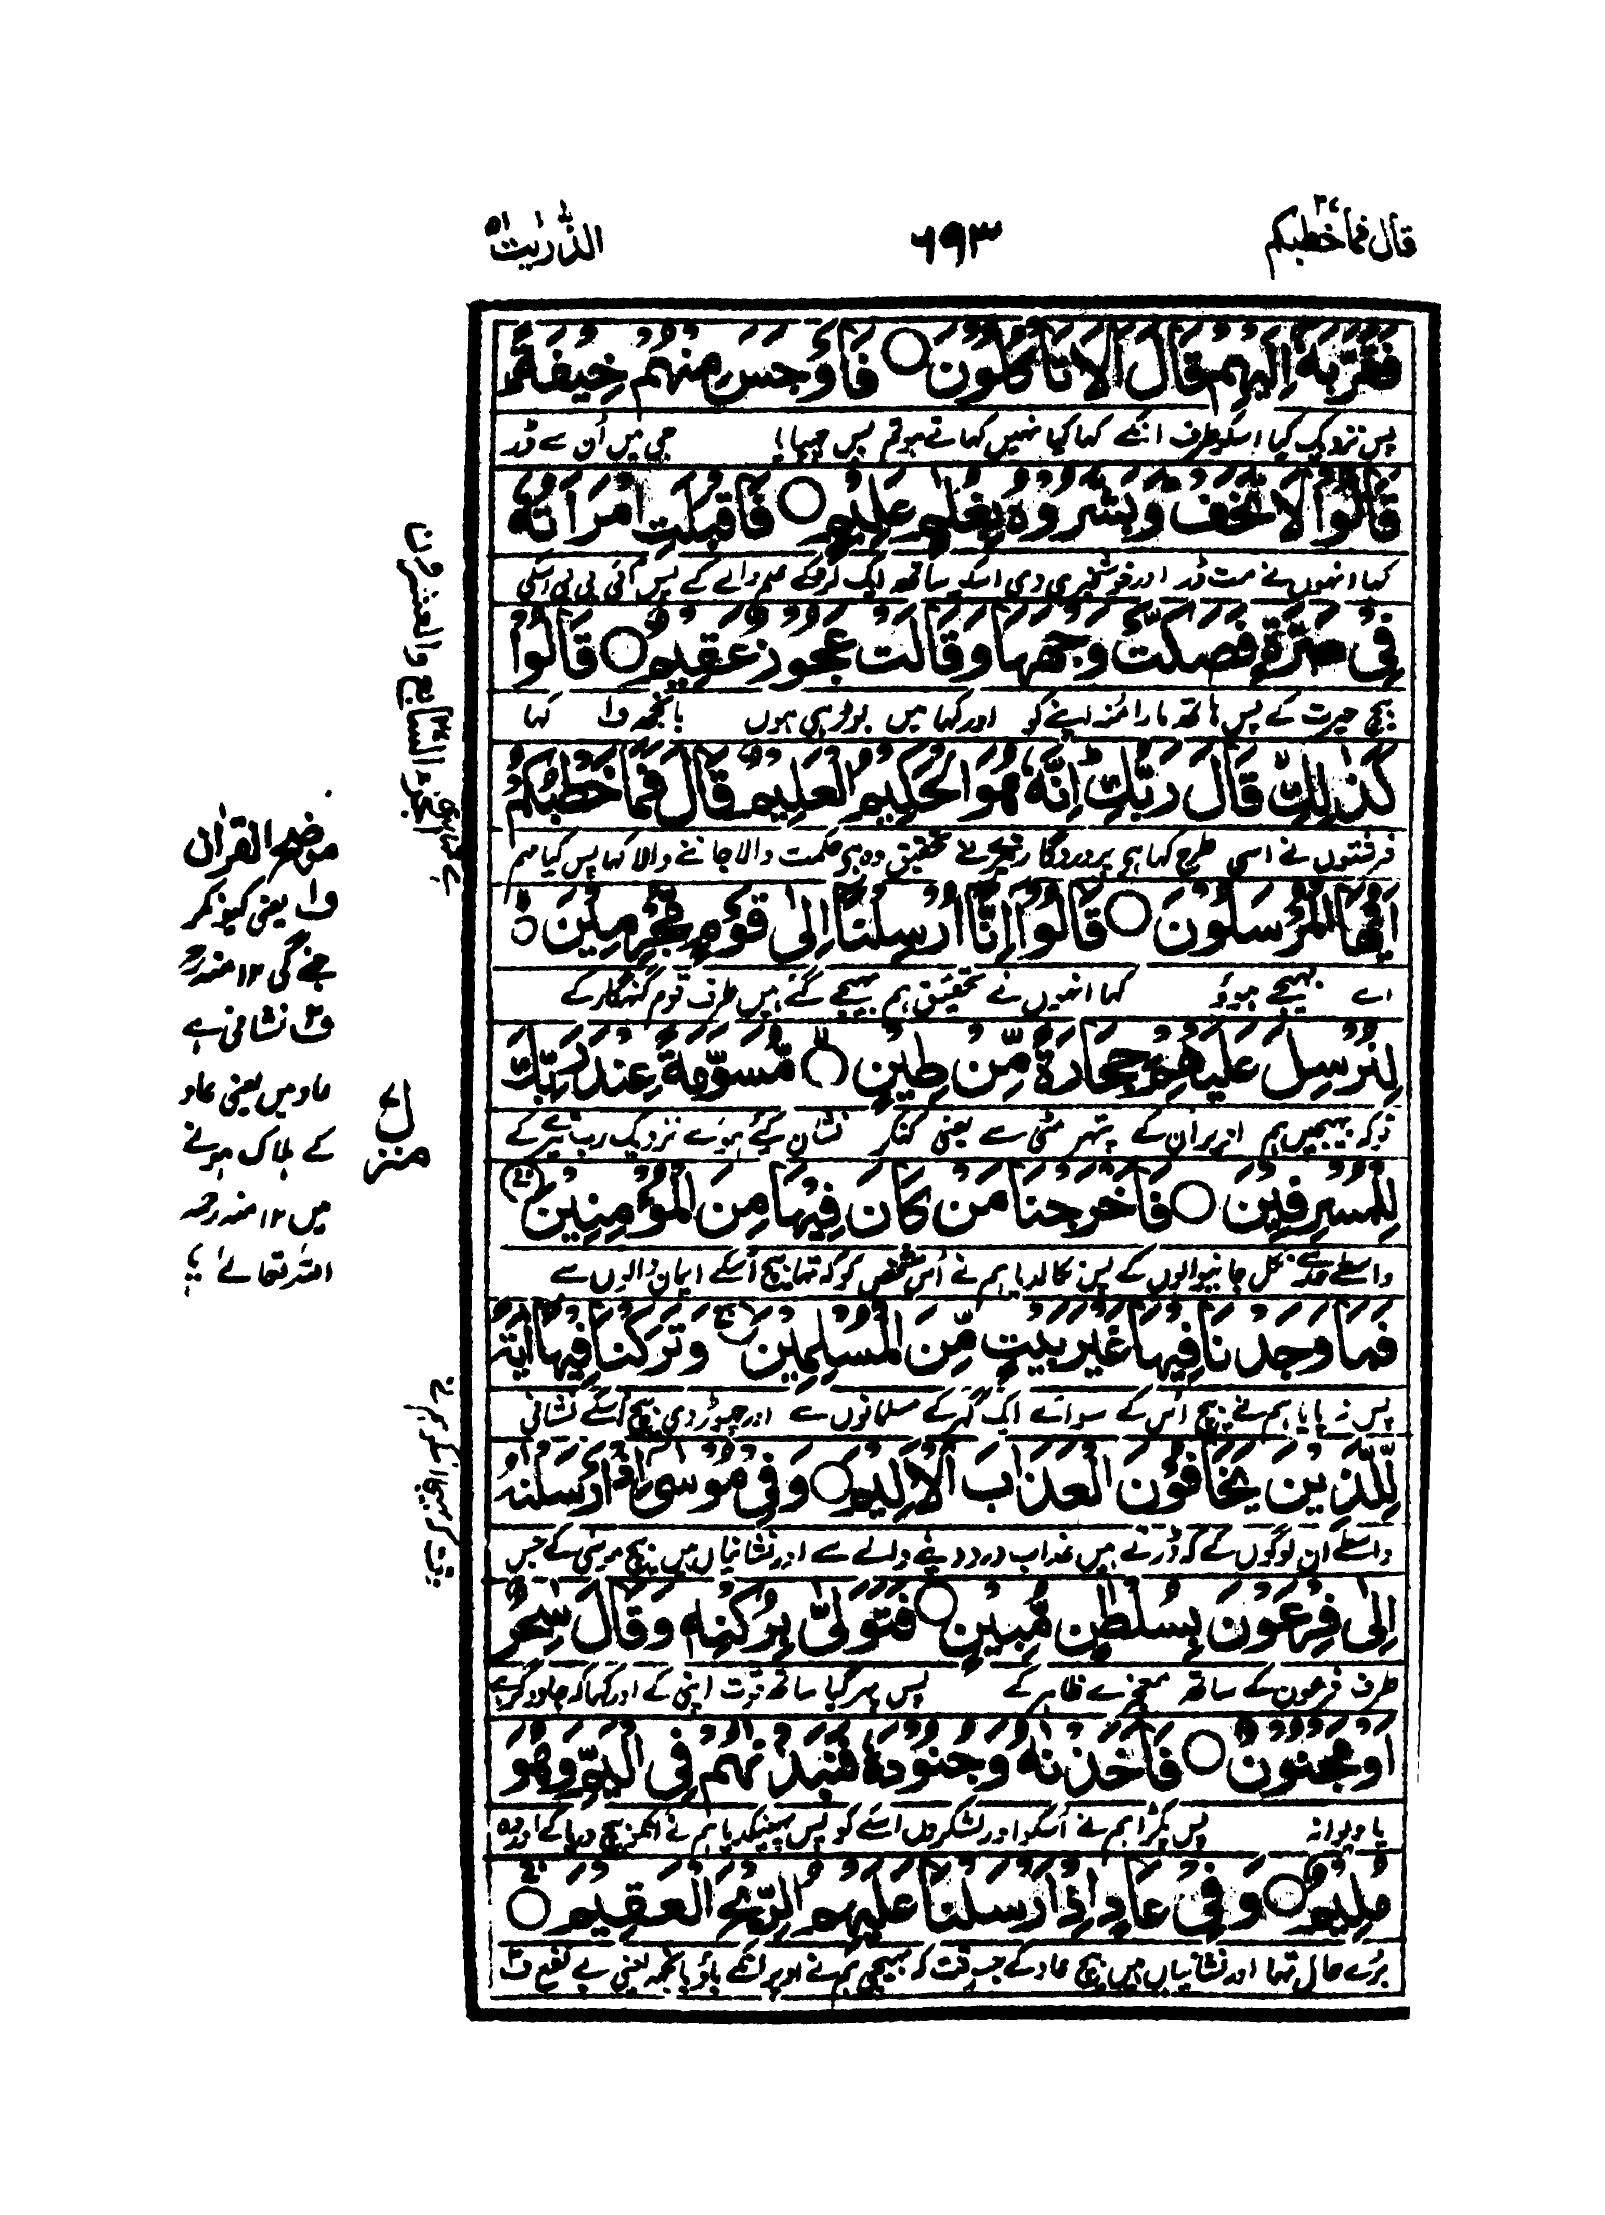 قال فما خطبكم ٢٧
٦٩٣
الذّٰريٰت ٥١
فَقَرَّبَهٗۤ اِلَيْهِمْ قَالَ اَلَا تَاْكُلُوْنَ ○ فَاَوْجَسَ مِنْهُمْ خِيْفَةً
پس نزدیک کیا اسکو طرف انکے کہا کیا نہیں کہاتے ہو تم پس چہپایا جی میں اُن سے ڈر
قَالُوْا لَا تَخَفْ وَبَشَّرُوْهُ بِغُلٰمٍ عَلِيْمٍ ○ فَاَقْبَلَتِ امْرَاَتُهٗ
کہا انہوں نے مت ڈر اور خوشخبری دی اسکو ساتھ ایک لڑکے علم والے کے پس آئی بی بی اسکی
فِيْ صَرَّةٍ فَصَكَّتْ وَجْهَهَا وَقَالَتْ عَجُوْزٌ عَقِيْمٌ ○ قَالُوْا
بیچ حیرت کے پس ہاتھ مارا منہ اپنے کو اور کہا میں بوڑہی ہوں بانجھ ف۱ کہا
كَذٰلِكِ قَالَ رَبُّكِ اِنَّهٗ هُوَ الْحَكِيْمُ الْعَلِيْمُ قَالَ فَمَا خَطْبُكُمْ
فرشتوں نے اسی طرح کہا ہی پروردگار تیرے نے تحقیق وہ ہی حکمت والا جاننے والا کہا پس کیا مہم
اَيُّهَا الْمُرْسَلُوْنَ ○ قَالُوْۤا اِنَّاۤ اُرْسِلْنَاۤ اِلٰى قَوْمٍ مُّجْرِمِيْنَ ○
اے بہیجے ہوؤ کہا انہوں نے تحقیق ہم بہیجے گئے ہیں طرف قوم گنہگار کے
لِنُرْسِلَ عَلَيْهِمْ حِجَارَةً مِّنْ طِيْنٍ ○ مُّسَوَّمَةً عِنْدَ رَبِّكَ
توکہ بہیجیں ہم اوپر اُن کے پتہر مٹی سے یعنی کنکر نشان کیے ہوئے نزدیک رب تیرے کے
لِلْمُسْرِفِيْنَ ○ فَاَخْرَجْنَا مَنْ كَانَ فِيْهَا مِنَ الْمُؤْمِنِيْنَ
واسطے حد سے نکل جانیوالوں کے پس نکالدیا ہم نے اُس شخص کو کہ تہا بیچ اُسکے ایمان والوں سے
فَمَا وَجَدْنَا فِيْهَا غَيْرَ بَيْتٍ مِّنَ الْمُسْلِمِيْنَ وَتَرَكْنَا فِيْهَاۤ اٰيَةً
پس نہ پایا ہم نے بیچ اُس کے سوائے ایک گہر کے مسلمانوں سے اور چہوڑ دی بیچ اُسکے نشانی
لِّلَّذِيْنَ يَخَافُوْنَ الْعَذَابَ الْاَلِيْمَ ○ وَفِيْ مُوْسٰۤى اِذْ اَرْسَلْنٰهُ
واسطے ان لوگوں کے کہ ڈرتے ہیں عذاب درد دینے والے سے اور نشانیاں ہیں بیچ موسیٰ کے جس
اِلٰى فِرْعَوْنَ بِسُلْطٰنٍ مُّبِيْنٍ ○ فَتَوَلّٰى بِرُكْنِهٖ وَقَالَ سٰحِرٌ
طرف فرعون کے ساتھ معجزے ظاہر کے پس پہر گیا ساتھ قوت اپنی کے اور کہا کہ جادوگر ہے
اَوْ مَجْنُوْنٌ ○ فَاَخَذْنٰهُ وَجُنُوْدَهٗ فَنَبَذْنٰهُمْ فِي الْيَمِّ وَهُوَ
یا دیوانہ پس پکڑا ہم نے اُسکو اور لشکروں اسکے کو پس پہینکدیا ہم نے انکو بیچ دریا کے اور وہ
مُلِيْمٌ ○ وَفِيْ عَادٍ اِذْ اَرْسَلْنَا عَلَيْهِمُ الرِّيْحَ الْعَقِيْمَ ○
بُرے حال تہا اور نشانیاں ہیں بیچ عاد کے جس وقت کہ بہیجی ہم نے اوپر انکے باؤ بانجھ یعنی بے نفع ف۲
موضح القرآن
ف۱ یعنی کیونکر
جنے گی ۱۲ منہ رح
ف۲ نشانی ہے
عاد میں یعنی عاد
کے ہلاک ہونے
میں ۱۲ منہ رحمہ
اللہ تعالےٰ
منزل